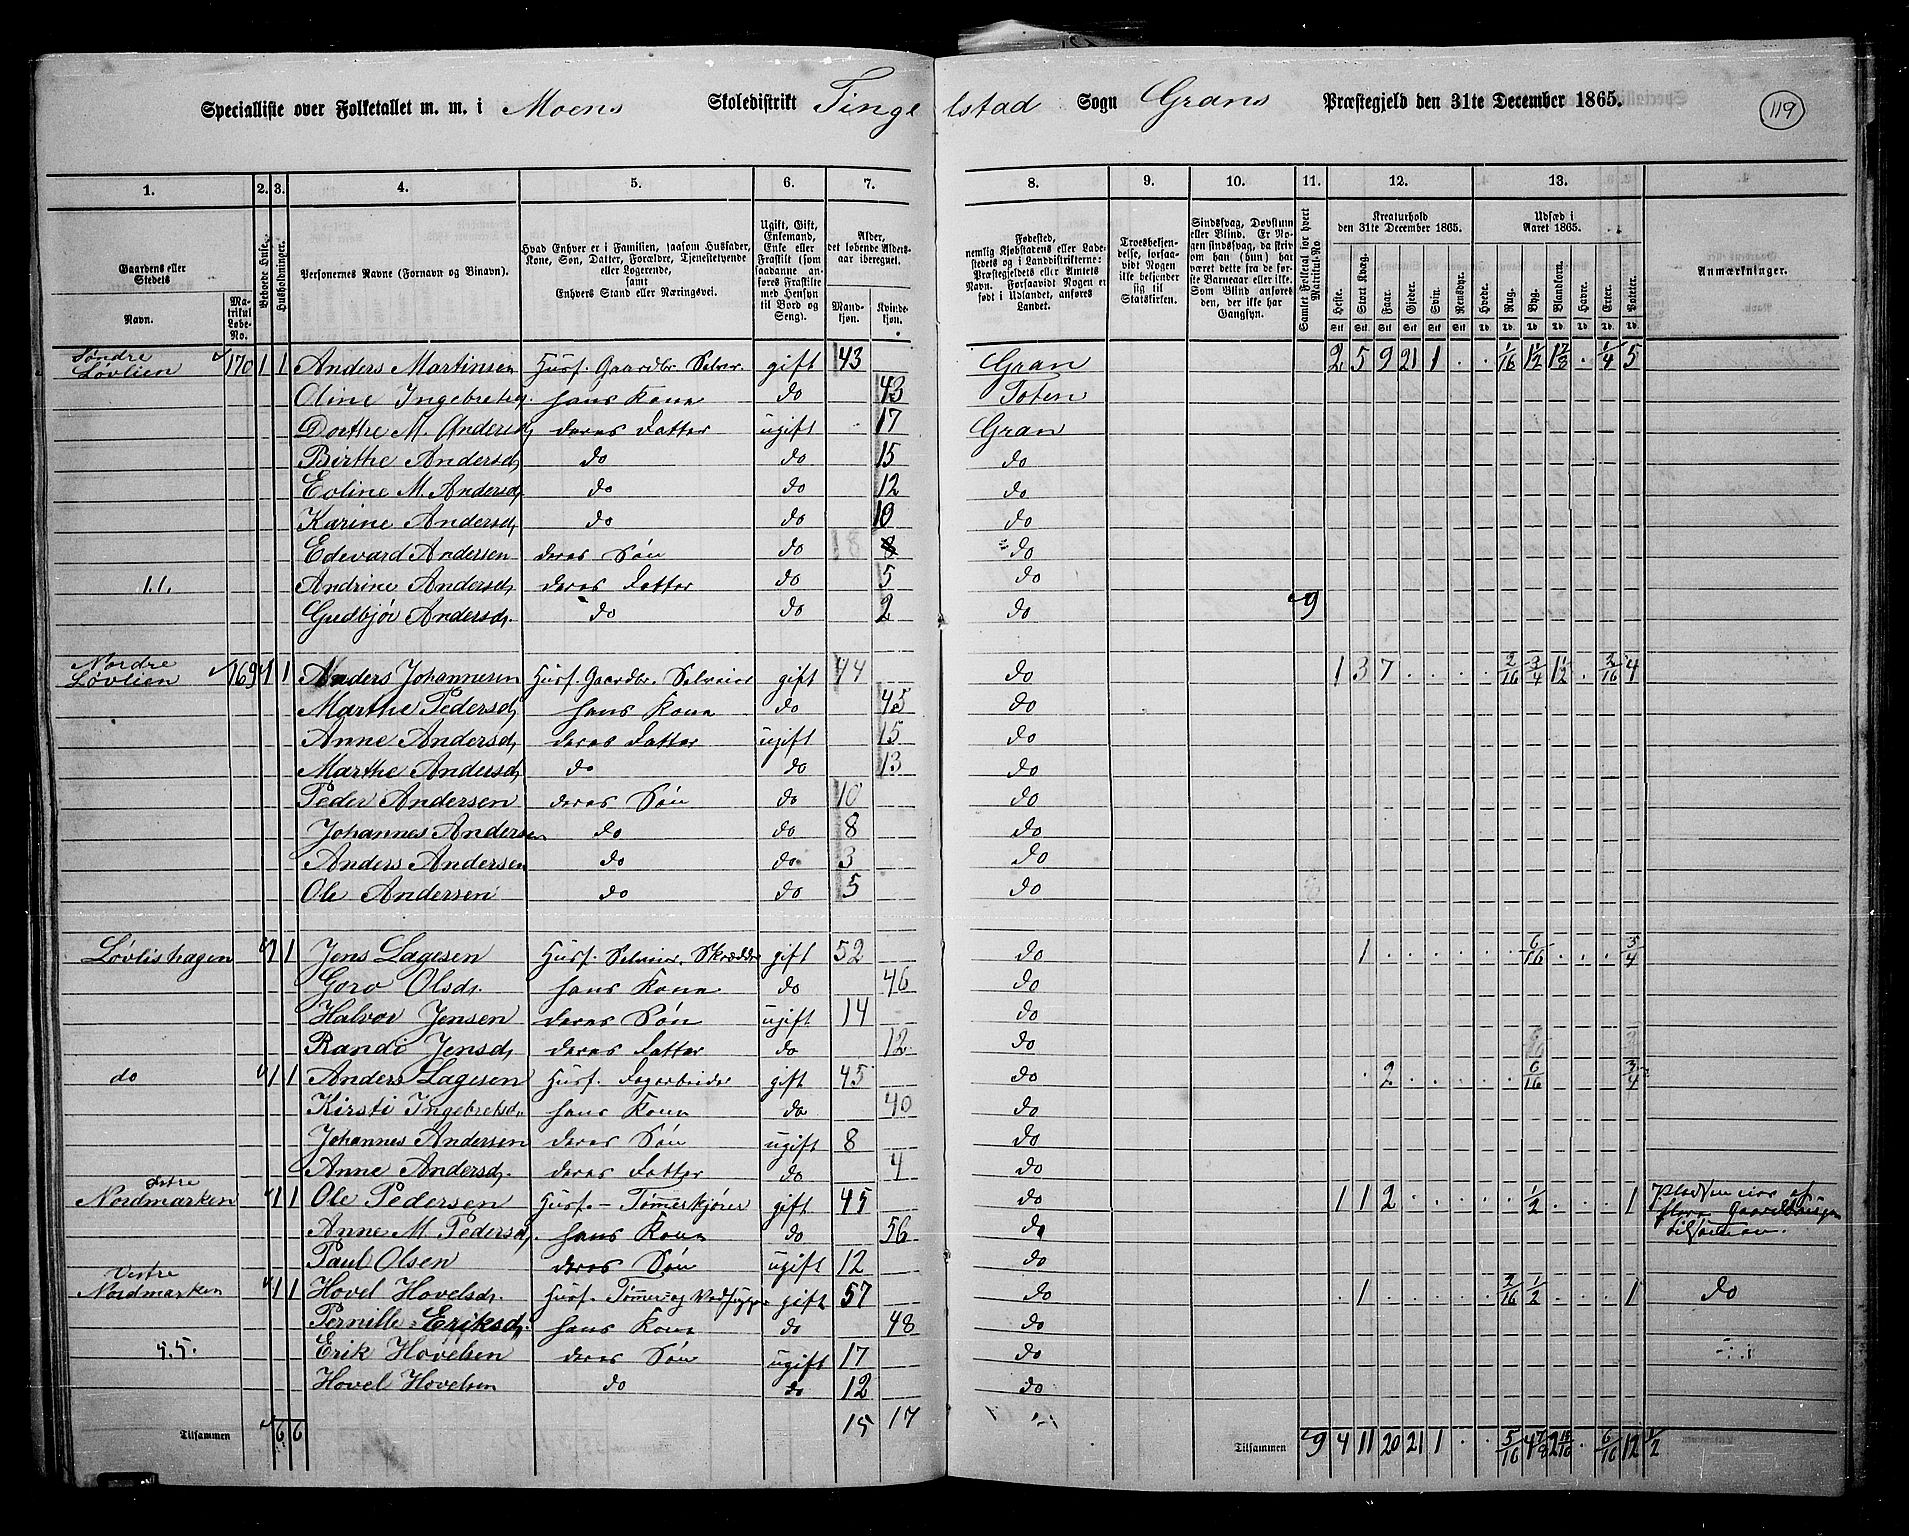 Specialliste over Folketallet m. m. i Moens Skoledistrikt Tingelstad Sogn Grans Præstegjeld den 31te December 1865. 119
1. 2. 3. 4. 5. 6. 7. 8. 9. 10. 11. 12. 13.
Gaardens eller Stedets
Navn.
Matrikul Løbe-No.
Beboede Huse.
Husholdninger.
Personernes Navne (Fornavn og Binavn).
Hvad Enhver er i Familien, saasom Husfader, Kone, Søn, Datter, Forældre, Tjenestetyende eller Logerende, samt Enhvers Stand eller Næringsvei.
Ugift, Gift, Enkemand, Enke eller Fraskilt (som saadanne anføres Fraskilte med Hensyn til Bord og Seng).
Alder, det løbende Aldersaar iberegnet.
Mandkjøn. Kvindekjøn.
Fødested, nemlig Kjøbstadens eller Ladestedets og i Landdistrikterne: Præstegjeldets eller Amtets Navn. Forsaavidt Nogen er født i Udlandet, anføres Landet.
Troesbekjendelse, forsaavidt Nogen ikke bekjender sig til Statskirken.
Sindssvag, Døvstum eller Blind. Er Nogen sindssvag, da skriv om han (hun) har været dette fra de første Barneaar eller ikke. Som Blind anføres den, der ikke har Gangsyn.
Samlet Folketal for hvert Matrikul-No
Kreaturhold den 31te December 1865.
Heste. Stort Kvæg. Faar. Gjeder. Svin. Rensdyr.
Udsæd i Aaret 1865.
Hvede. Rug. Byg. Blandkorn. Havre. Erter. Poteter.
Anmærkninger.
Søndre Løvlien 170 1 1 Anders Martinsen Husf. Gaardbr. Selveier gift 43 Gran 2 5 9 21 1 . . 1/16 1 1/2 1 7/8 . 1/4 5
Oline Ingebretsd. hans Kone do 43 Toten
Dorthe M. Andersd. deres Datter ugift 17 Gran
Birthe Andersd. do do 15 do
Eoline M. Andersd. do do 12 do
Karine Andersd. do do 10 do
Edevard Andersen deres Søn do 8 do
Andrine Andersd. deres Datter do 5 do
Gudbjør Andersd. do do 2 do 9
Nordre Løvlien 169 1 1 Anders Johannesen Husf. Gaardbr. Selveier gift 44 do 1 3 7 . . . . 2/16 3/4 1 1/2 . 3/16 4
Marthe Pedersd. hans Kone do 45 do
Anne Andersd. deres Datter ugift 15 do
Marthe Andersd. do do 13 do
Peder Andersen deres Søn do 10 do
Johannes Andersen do do 8 do
Anders Andersen do do 3 do
Ole Andersen do do 5 do
Løvlishagen 1 1 Jens Lagesen Husf. Selveier. Skrædder gift 52 do . 1 . . . . . . 6/16 . . . 5/4
Goro Olsdr. hans Kone do 46 do
Halvor Jensen deres Søn ugift 14 do
Randi Jensd. deres Datter do 12 do
do 1 1 Anders Lagesen Husf. Dagarbeider gift 45 do . . 2 . . . . . 6/16 . . . 3/4
Kirsti Ingebretsd. hans Kone do 40 do
Johannes Andersen deres Søn ugift 8 do
Anne Andersd. deres Datter do 4 do
Østre Nordmarken 1 1 Ole Pedersen Husf. - Tømmerkjører gift 45 do 1 1 2 . . . . . 1/2 . . . 1
Anne M. Pedersd. hans Kone do 56 do
Paul Olsen deres Søn ugift 12 do
Vestre Nordmarken 1 1 Hovel Hovelsdr. Husf. Tømmer- og Vedhugger gift 57 do . 1 . . . . . 2/16 1/2 . . . 1 do
Pernille Eriksd. hans Kone do 48 do
5.5. Erik Hovelsen deres Søn ugift 17 do
Hovel Hovelsen do do 12 do
Tilsammen 6 6 15 17
Tilsammen 9 4 11 20 21 1 . . 5/16 4 7/8 . 6/16 12 1/2